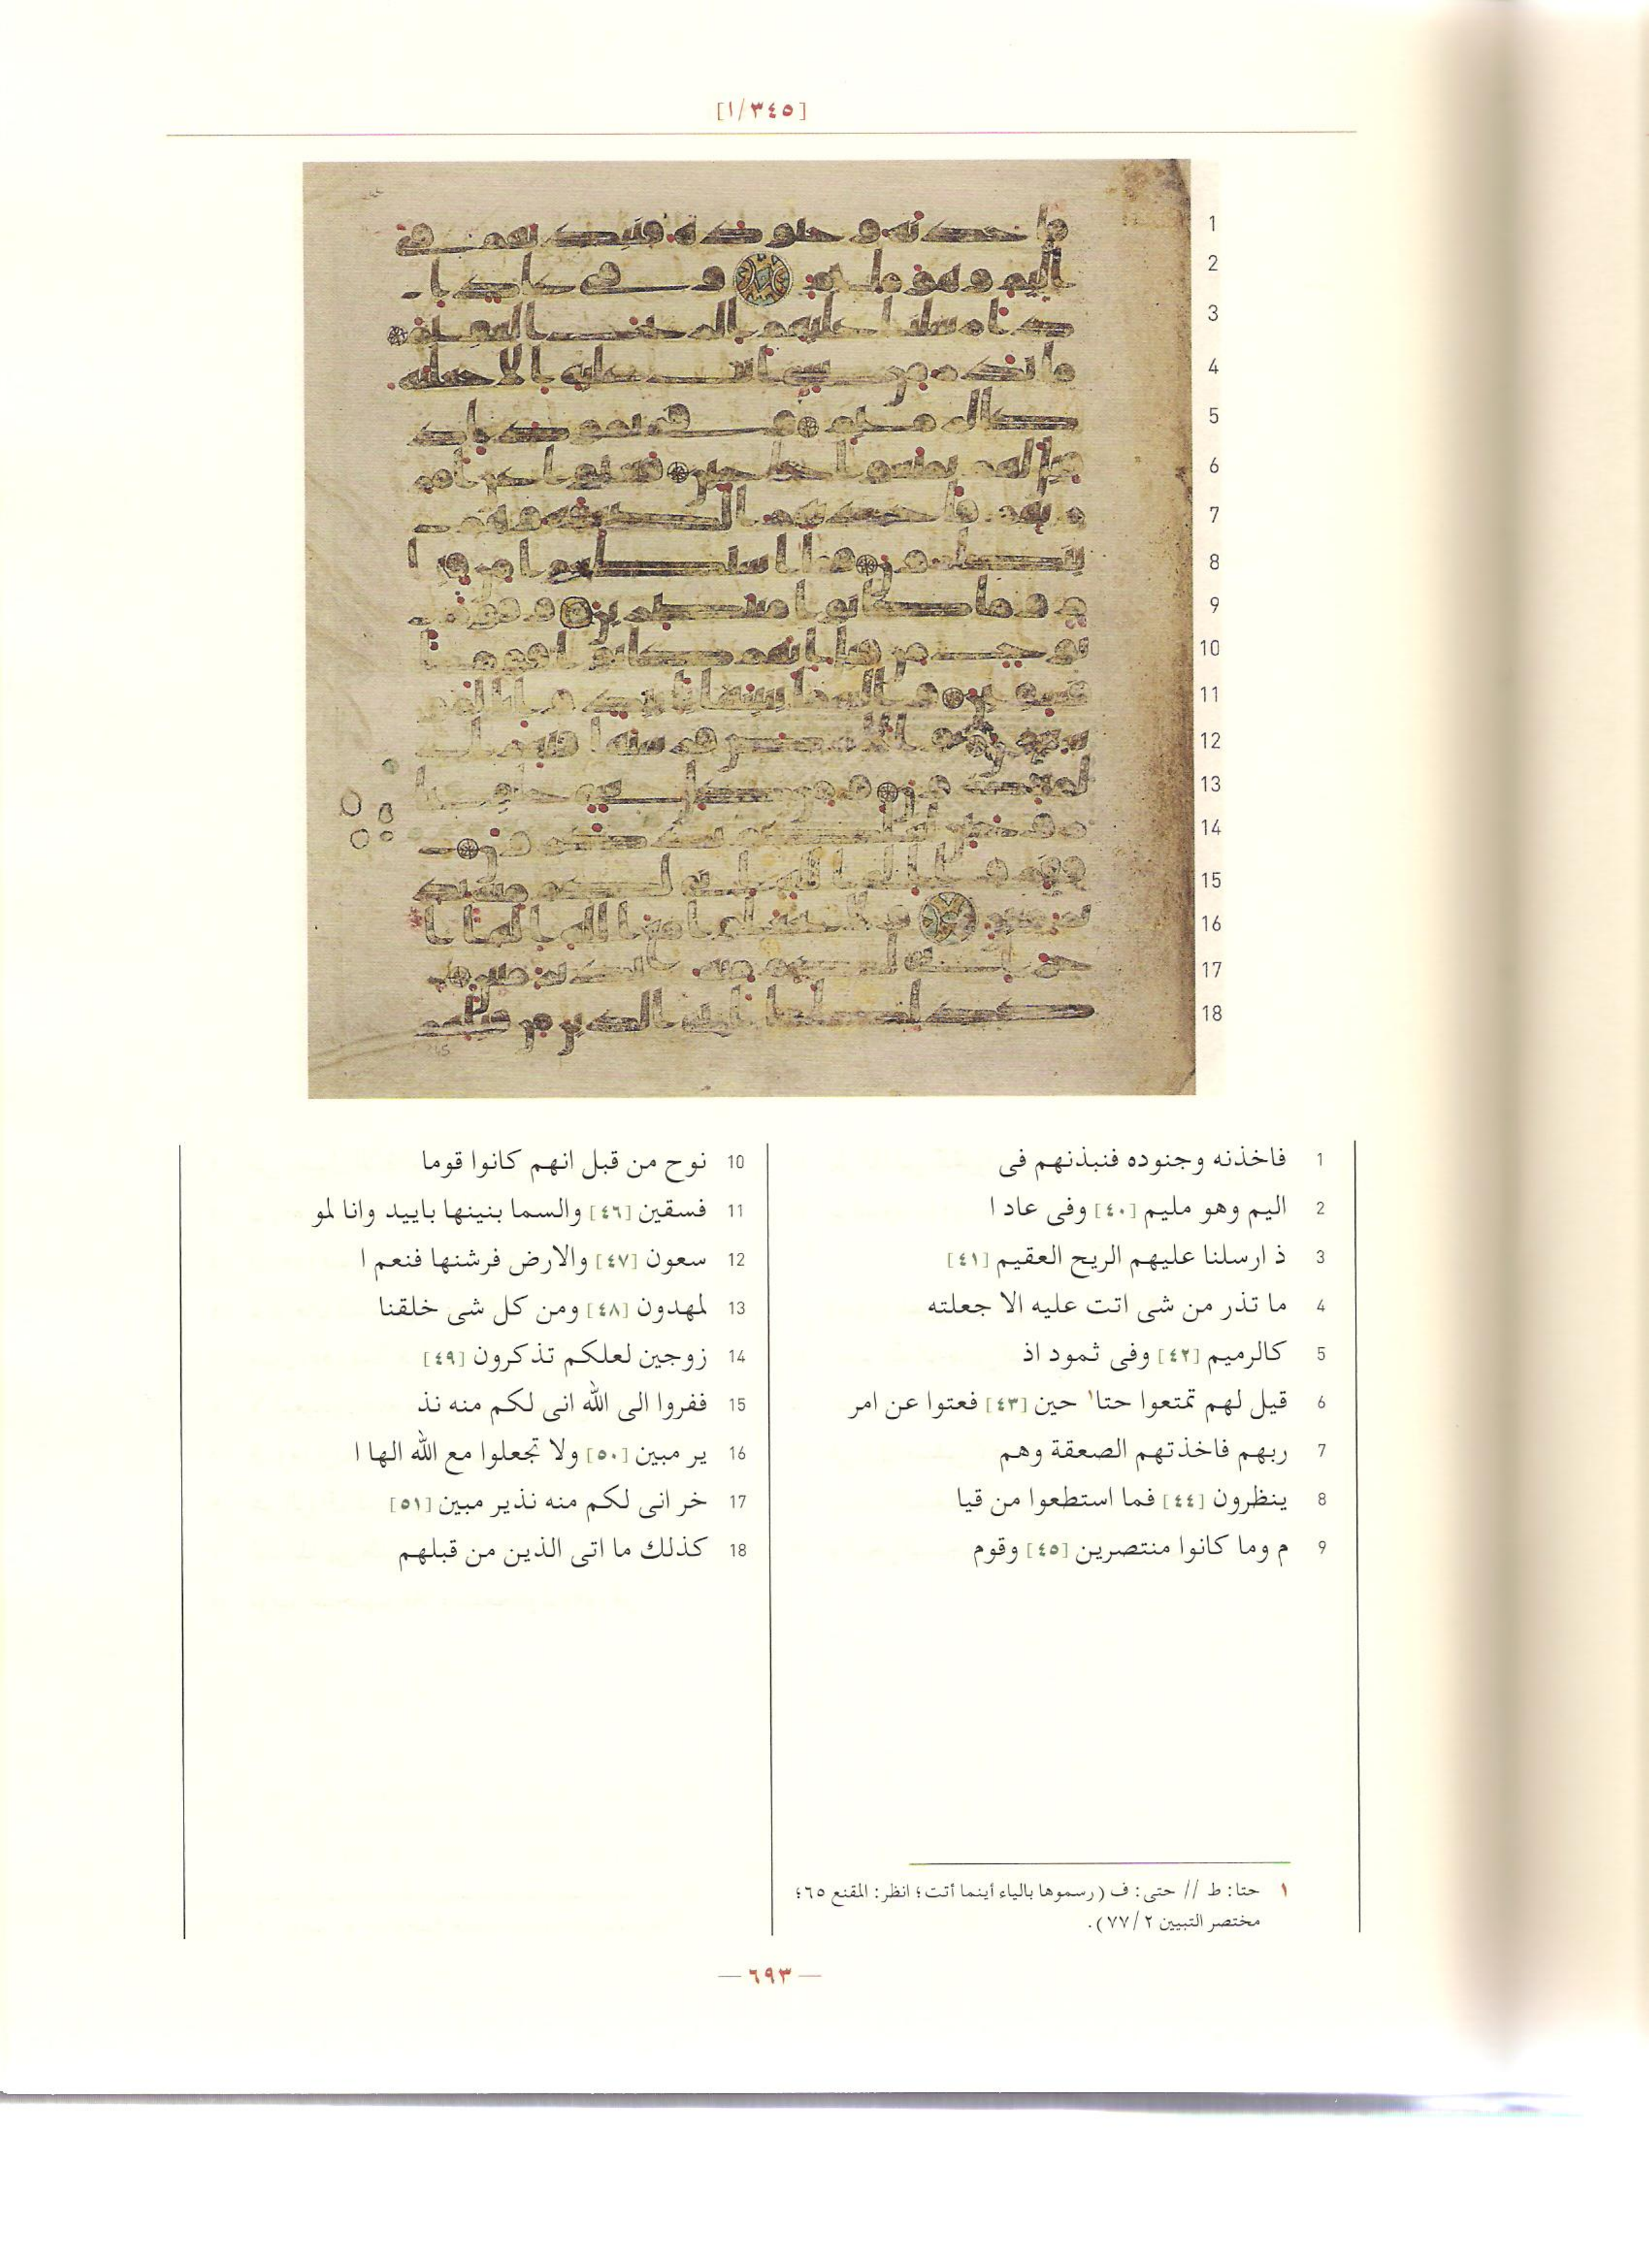 [٣٤٥/١]
1
2
3
4
5
6
7
8
9
10
11
12
13
14
15
16
17
18
1 فاخذنه وجنوده فنبذنهم فى
2 اليم وهو مليم [٤٠] وفى عاد ا
3 ذ ارسلنا عليهم الريح العقيم [٤١]
4 ما تذر من شى اتت عليه الا جعلته
5 كالرميم [٤٢] وفى ثمود اذ
6 قيل لهم تمتعوا حتا١ حين [٤٣] فعتوا عن امر
7 ربهم فاخذتهم الصعقة وهم
8 ينظرون [٤٤] فما استطعوا من قيا
9 م وما كانوا منتصرين [٤٥] وقوم
10 نوح من قبل انهم كانوا قوما
11 فسقين [٤٦] والسما بنينها باييد وانا لمو
12 سعون [٤٧] والارض فرشنها فنعم ا
13 لمهدون [٤٨] ومن كل شى خلقنا
14 زوجين لعلكم تذكرون [٤٩]
15 ففروا الى الله انى لكم منه نذ
16 ير مبين [٥٠] ولا تجعلوا مع الله الها ا
17 خر انى لكم منه نذير مبين [٥١]
18 كذلك ما اتى الذين من قبلهم
١ حتا: ط // حتى: ف (رسموها بالياء أينما أتت؛ انظر: المقنع ٦٥؛
مختصر التبيين ٧٧/٢).
— ٦٩٣ —